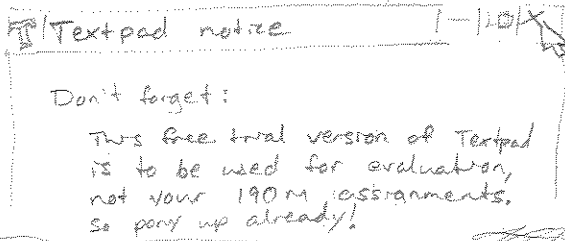 T Textpad notice
Don't forget:
This free trial version of Textpad
is to be used for evaluation,
not your 190M assignments.
So pony up already!